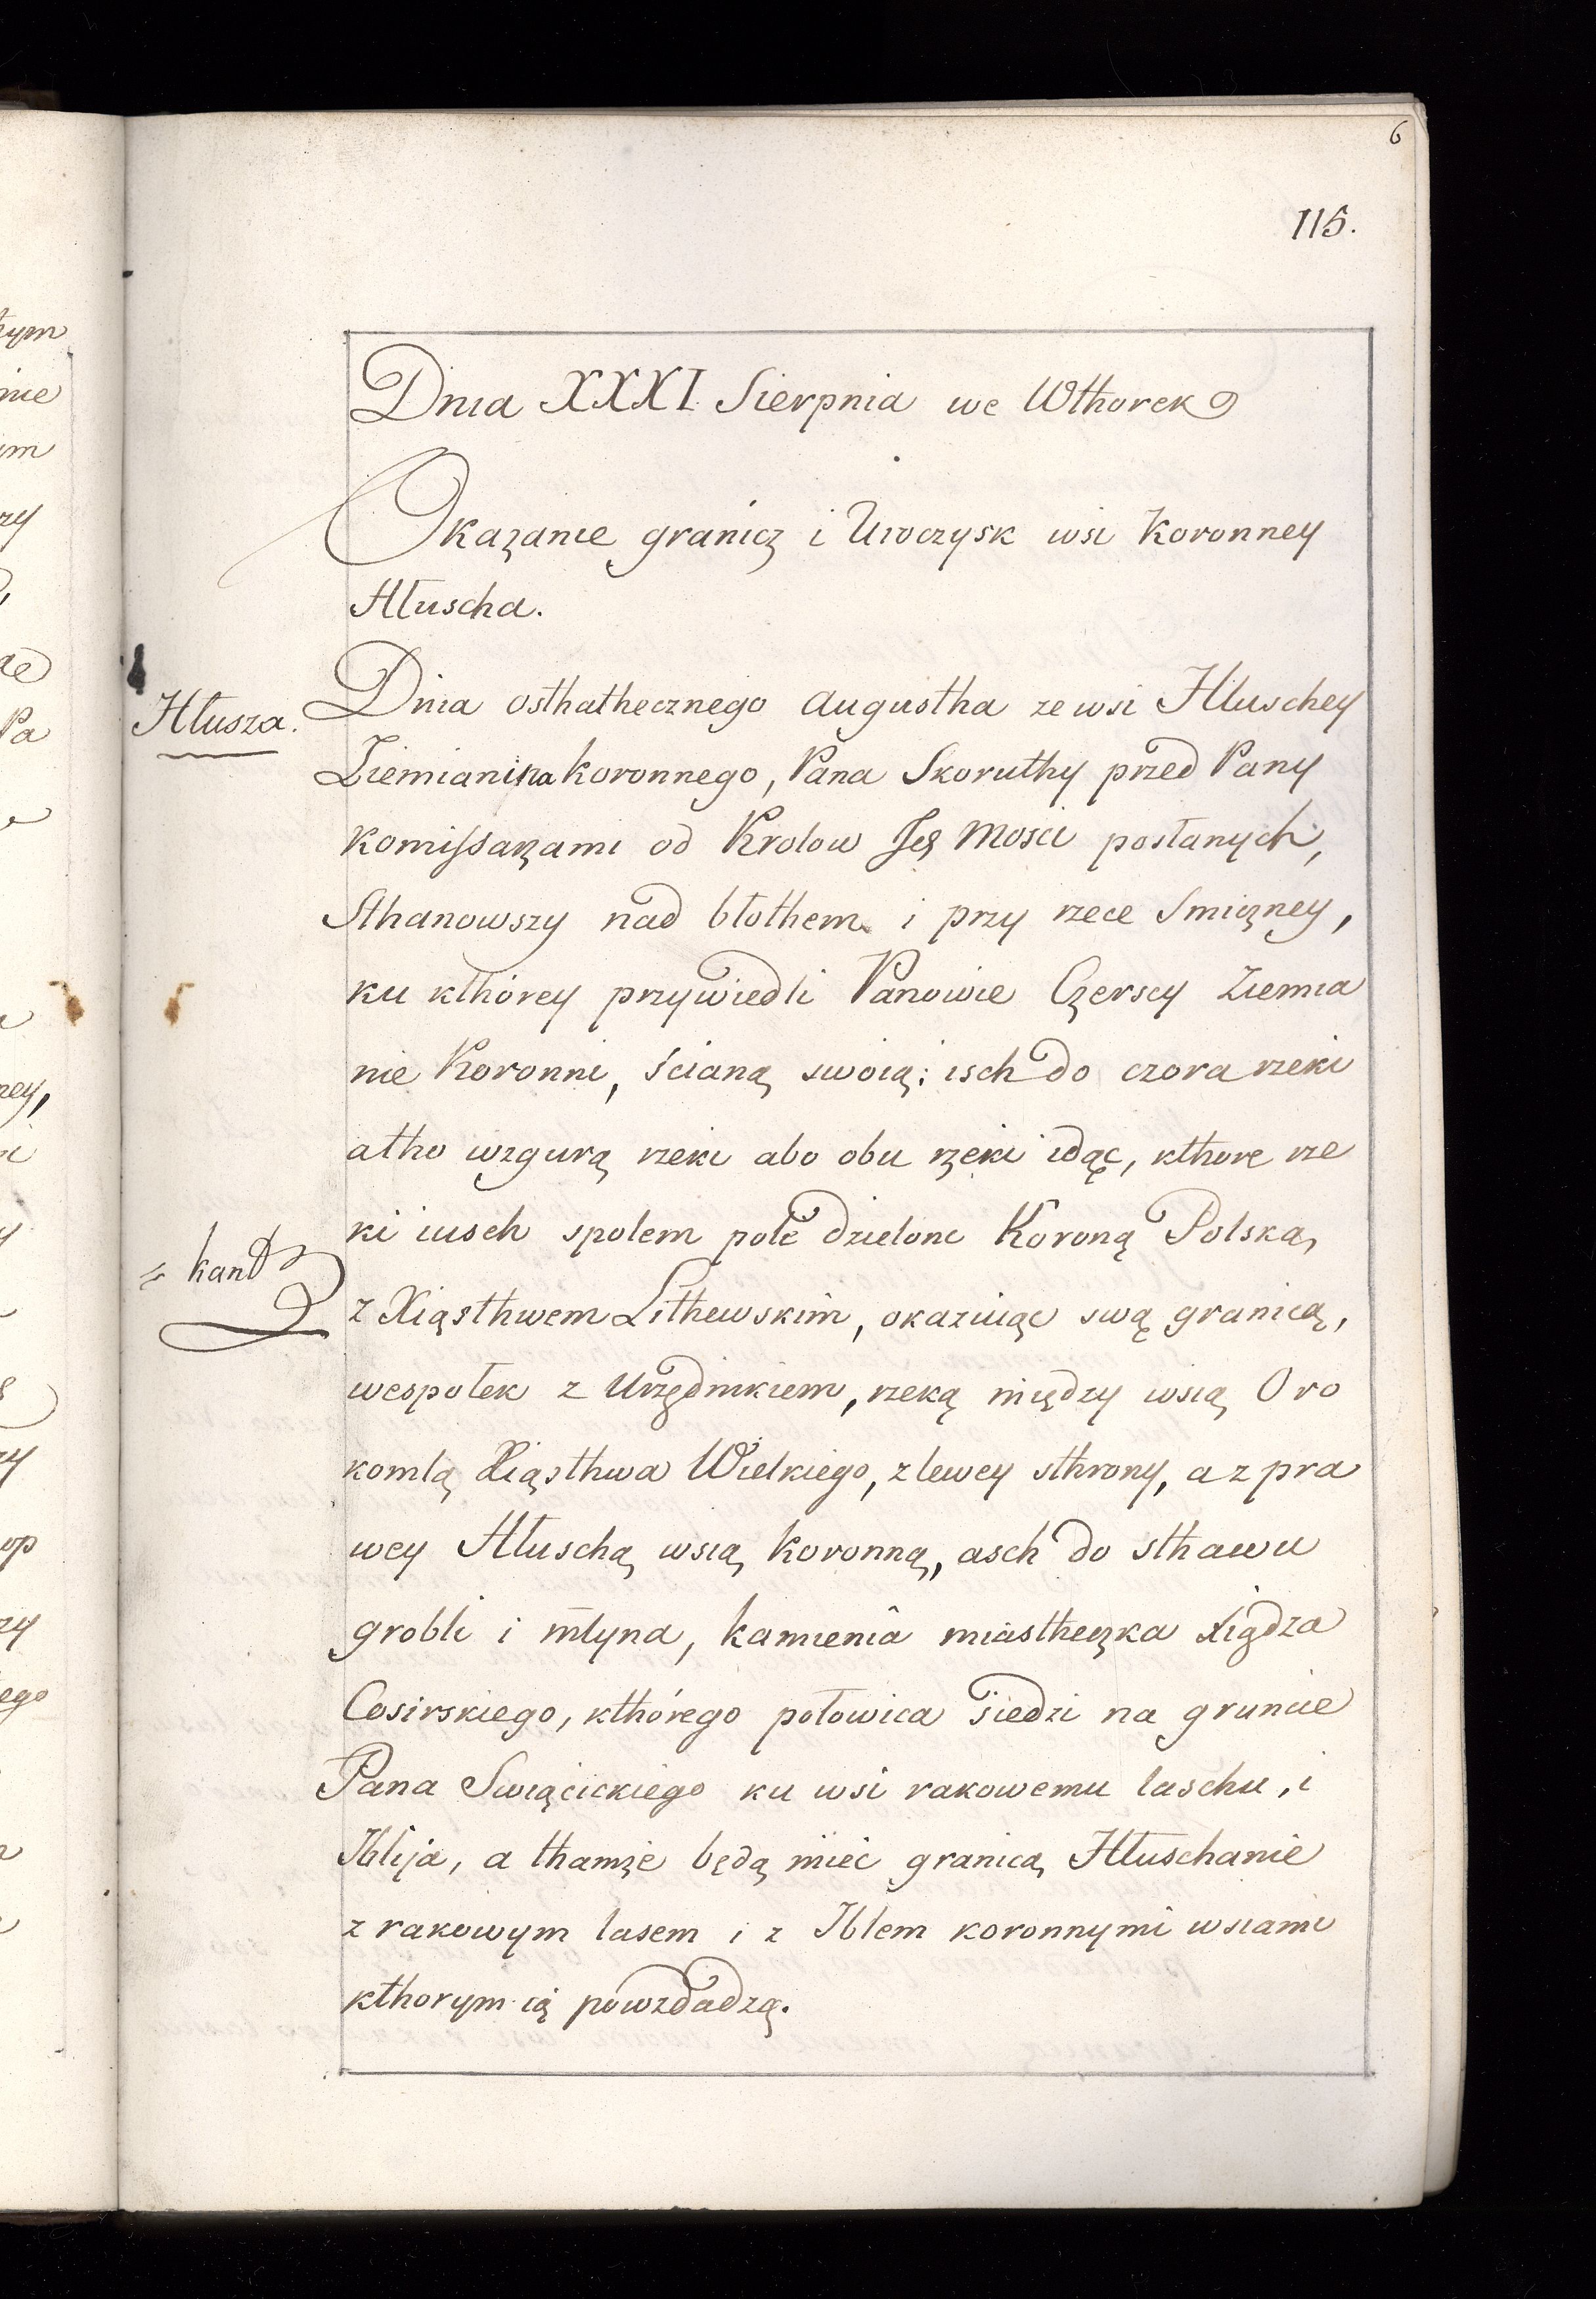 6
115.
Dnia XXXI Sierpnia we Wthorek
Okazanie granicz i Uroczysk wsi Koronney
Hłuscha.
Hłusza.
Dnia osthathecznego Augustha ze wsi Hłuschey
Ziemianina koronnego, Pana Skoruthy przed Pany
Komissarzami od Krolow Mosci posłanych,
Sthanowszy nad błothem i przy rzece Smiczney,
ku kthórey przywiedli Panowie Czerscy Ziemia
nie Koronni, scianą swoią; isch do czora rzeki
atho wzgurą rzeki abo obu rzeki idąc, kthore rze
ki iusch spolem pole dzielone Koroną Polską,
= kant
z Xiąsthwem Lithewskim, okazuiąc swą granicą,
wespołek z Urzędnikiem, rzeką między wsią Oro
komlą Xiąsthwa Wielkiego, z lewey sthrony, a z pra
wey Hłuschą wsią koronną, asch do sthawu
grobli i młyna, kamienia miastheczka Xigdza
Cosirskiego, kthórego połowica siedzi na gruncie
Pana Swiącickiego ku wsi rakowemu laschu, i
Iblija, a thamże będą mieć granicą Hłuschanie
z rakowym lasem i z Iblem koronnymi wsiami
kthorym ią powzdadzą.